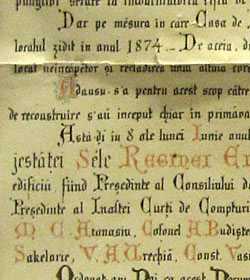 Dar pe mésura în care Casa de
localul zidit în anul 1874.- De aceia, di
local neincăpĕtor și recladirea unui altuia core
Adausu-s'a pentru acest scop cătră
de reconstruire s'aŭ inceput chiar în primăva
Astă-di în 8 ale luneĭ Iunie anul
jestăteĭ Séle REGINEĬ El
edificiŭ fiind Președinte al Consiliuluĭ d
Președinte al Inalteĭ Curțĭ de Compturĭ
M. C. Atonasiu, Colonel A Budiște
Sakelarie, V. A. Urechiă, Const. Vas